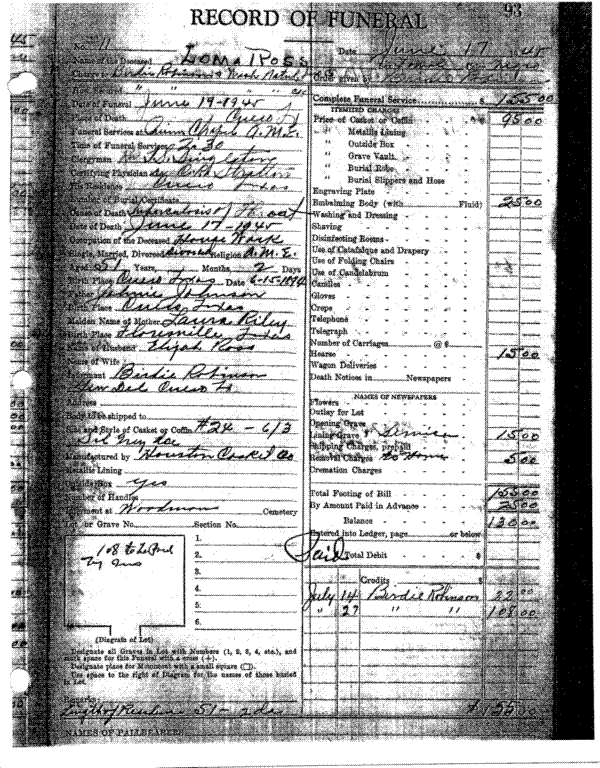 RECORD OF FUNERAL
93
No. 11
Date June 17 1945
Name of the Deceased Loma Ross
Charge to Birdie Robinson &
Order given by Birdie Robinson
Date of Funeral June 19-1945
Place of Death Cuero
Funeral Services at Quinn Chapel A.M.E.
Time of Funeral Services 2:30
Clergyman Singleton
Certifying Physician
His Residence Cuero Texas
Number of Burial Certificate
Cause of Death Tuberculosis of Throat
Date of Death June 17-1945
Occupation of the Deceased House Work
Single, Married, Divorced Divorced Religion A.M.E.
Aged 51 Years, Months, 2 Days
Birth Place Cuero Texas Date 6-15-1894
Father Johnnie Johnson
Birth Place Cuero Texas
Maiden Name of Mother Laura Riley
Birth Place Floresville Texas
Name of Husband Elijah Ross
Name of Wife
Informant Birdie Robinson
Cuero Tx
Address
Body to be shipped to
Size and Style of Casket or Coffin #24 - 6/3
Sil Grey
Manufactured by Houston Casket Co
Metallic Lining
Outside Box yes
Number of Handles
Interment at Woodmans Cemetery
Lot or Grave No. Section No.
108 to be Paid
by Ins
1.
2.
3.
4.
5.
6.
(Diagram of Lot)
Designate all Graves in Lot with Numbers (1, 2, 3, 4, etc.), and
mark space for this Funeral with a cross (+).
Designate place for Monument with a small square (□).
Use space to the right of Diagram for the names of those buried
in Lot.
Length of Residence 51 - 2 das
NAMES OF PALLBEARERS
Complete Funeral Service $ 155 00
ITEMIZED CHARGES
Price of Casket or Coffin 95 00
" Metallic Lining
" Outside Box
" Grave Vault
" Burial Robe
" Burial Slippers and Hose
Engraving Plate
Embalming Body (with Fluid) 25 00
Washing and Dressing
Shaving
Disinfecting Rooms
Use of Catafalque and Drapery
Use of Folding Chairs
Use of Candelabrum
Candles
Gloves
Crepe
Telephone
Telegraph
Number of Carriages @ $
Hearse 15 00
Wagon Deliveries
Death Notices in Newspapers
NAMES OF NEWSPAPERS
Flowers
Outlay for Lot
Opening Grave
Lining Grave & Service 15 00
Shipping Charges, prepaid
Removal Charges to Home 5 00
Cremation Charges
Total Footing of Bill 155 00
By Amount Paid in Advance 25 00
Balance 130 00
Entered into Ledger, page or below
Paid Total Debit $
Credits $
July 14 Birdie Robinson 22 00
" 27 " " 108 00
$155 00